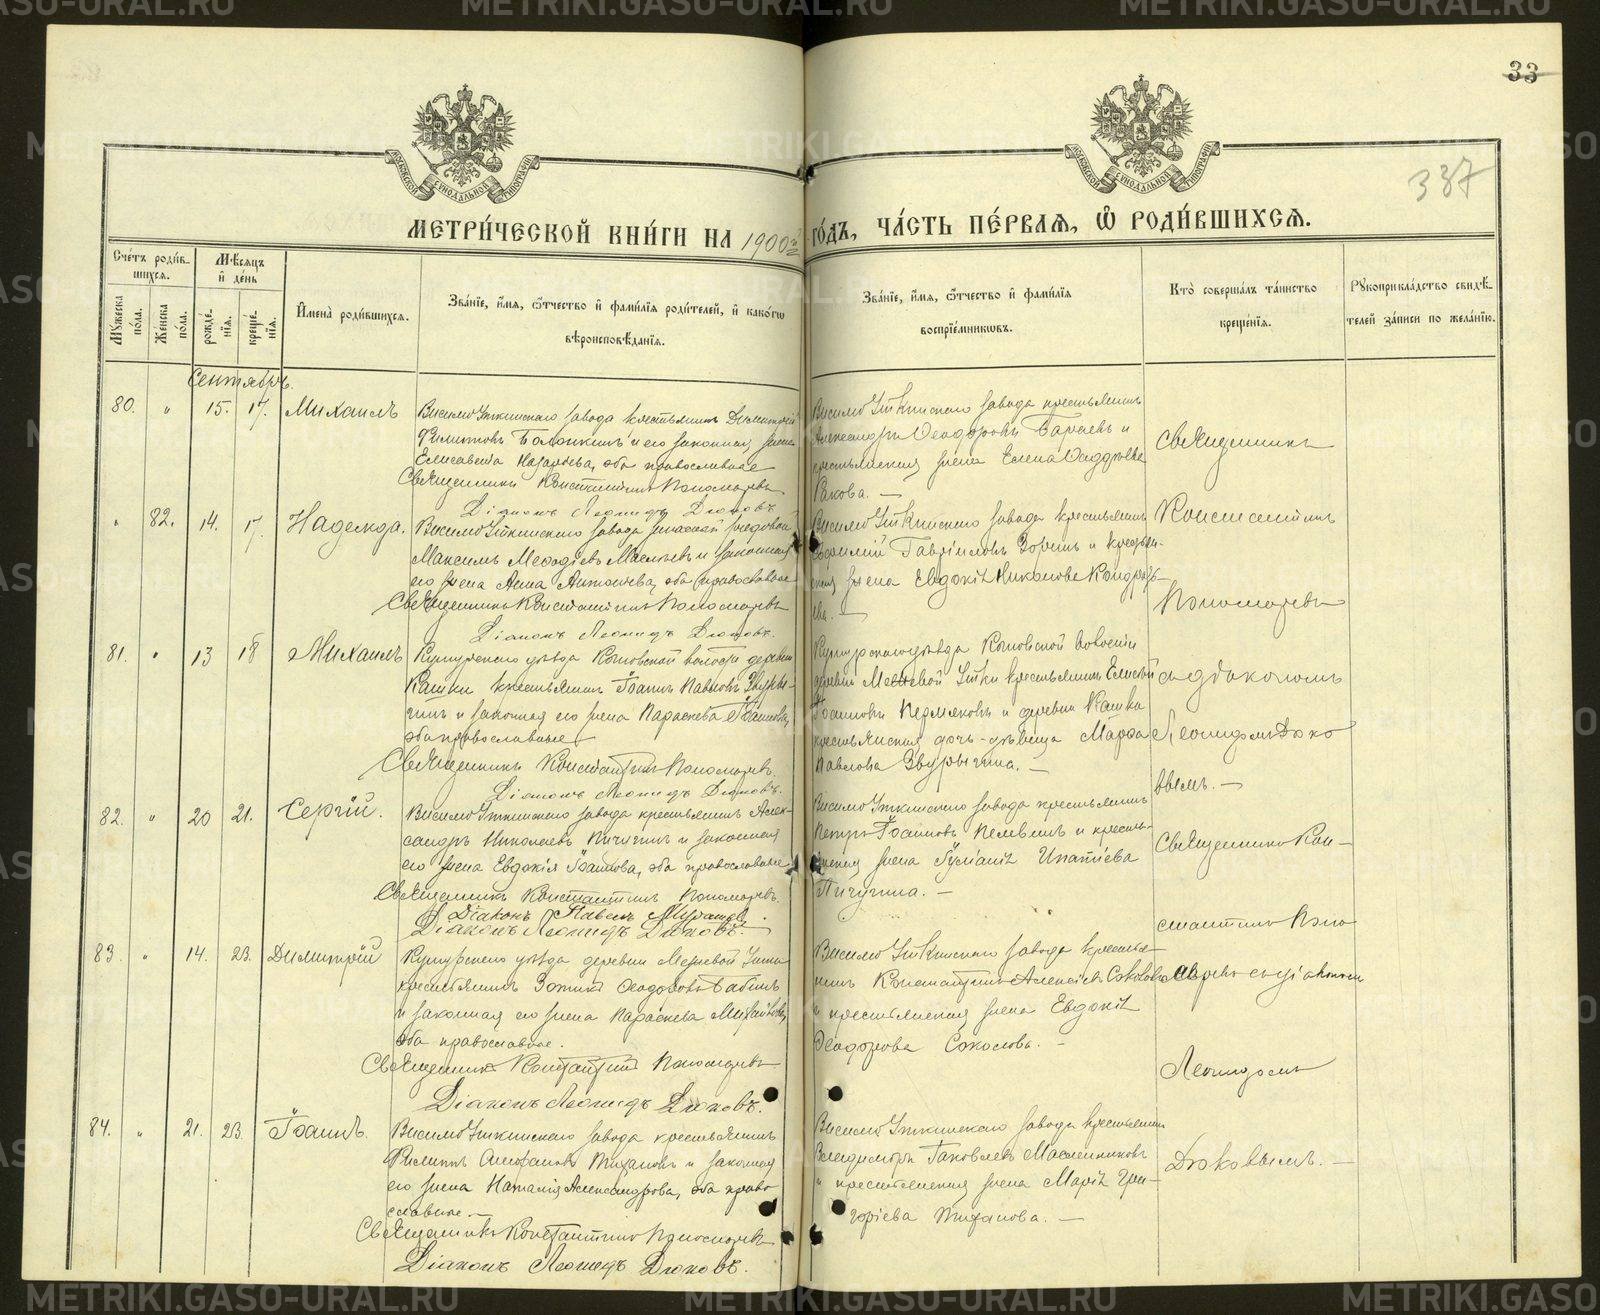 METRIKI.GASO-URAL.RU
33
337
МОСКОВСКОЙ СѴНОДАЛЬНОЙ ТИПОГРАФІИ
МОСКОВСКОЙ СѴНОДАЛЬНОЙ ТИПОГРАФІИ
МЕТРИ́ЧЕСКОЙ КНИ́ГИ НА 1900й ГО́ДЪ, ЧА́СТЬ ПЕ́РВАЯ, Ѿ РОДИ́ВШИХСЯ.
Сче́тъ роди́вшихся.
Мѣ́сяцъ и҆ де́нь
Му́жеска по́ла.
Же́нска по́ла.
рожде́нїя.
креще́нїя.
И҆мена̀ роди́вшихся.
Зва́нїе, и҆́мя, ѻ҆́тчество и҆ фами́лїя роди́телей, и҆ како́гѡ
вѣроисповѣ́данїя.
Зва́нїе, и҆́мя, ѻ҆́тчество и҆ фами́лїя
воспрїе́мникѡвъ.
Кто̀ соверша́лъ та́инство
креще́нїя.
Рꙋкоприкла́дство свидѣ́телей за́писи по жела́нїю.
Сентябрь.
80. " 15. 17. Михаилъ
Висимо Уткинскаго завода крестьянинъ Димитрій
Филиповъ и его законная жена
Елисавета Назарьева, оба православные
Священникъ Константинъ Пономаревъ
Діаконъ Леонидъ Дюковъ.
Висимо Уткинскаго завода крестьянинъ
Александръ Ѳеодоровъ и
крестьянская жена Елена
Ракова. —
Священникъ
" 82. 14. 17. Надежда.
Висимо Уткинскаго завода
Максимъ Меѳодіевъ и законная
его жена Анна Антоньева, оба православные
Священникъ Константинъ Пономаревъ
Діаконъ Леонидъ Дюковъ.
Висимо Уткинскаго завода крестьянинъ
Гавріиловъ Зоринъ и крестьян-
ская жена Евдокія Николаева Кондрать-
ева. —
Константинъ
Пономаревъ
81. " 13 18 Михаилъ
Кунгурскаго уѣзда волости деревни
Кашки крестьянинъ Іоаннъ Павловъ Звѣры-
гинъ и законная его жена Параскева Іоаннова,
оба православные
Священникъ Константинъ Пономаревъ.
Діаконъ Леонидъ Дюковъ.
Кунгурскаго уѣзда волости
деревни Межевой Утки крестьянинъ Елисей
Іоанновъ Пермяковъ и деревни Кашка
крестьянская дочь-дѣвица Марѳа
Павлова Звѣрыгина. —
съ діакономъ
Леонидомъ Дюко
вымъ. —
82. " 20 21. Сергій.
Висимо Уткинскаго завода крестьянинъ Алек-
сандръ Николаевъ Пичугинъ и законная
его жена Евдокія Іоаннова, оба православные
Священникъ Константинъ Пономаревъ.
Діаконъ Павелъ
Діаконъ Леонидъ Дюковъ.
Висимо Уткинскаго завода крестьянинъ
Петръ Іоанновъ и крестья-
нская жена Іуліанія Ипатіева
Пичугина. —
Священникъ Кон—
стантинъ Поно
83. " 14. 23. Димитрій
Кунгурскаго уѣзда деревни Межевой Утки
крестьянинъ Ѳеодоровъ Бабинъ
и законная его жена Параскева Михайлова,
оба православные.
Священникъ Константинъ Пономаревъ
Діаконъ Леонидъ Дюковъ.
Висимо Уткинскаго завода крестья-
нинъ Константинъ Алексіевъ Соколовъ
и крестьянская жена Евдокія
Ѳеодорова Соколова. —
маревъ съ діакономъ
Леонидомъ
84. " 21. 23. Іоаннъ.
Висимо Уткинскаго завода крестьянинъ
Филиппъ и законная
его жена Наталія Александрова, оба право
славные. —
Священникъ Константинъ Пономаревъ
Діаконъ Леонидъ Дюковъ.
Висимо Уткинскаго завода крестьянинъ
Владиміръ Іаковлевъ Масленниковъ
и крестьянская жена Марія Гри-
горіева —
Дюковымъ. —